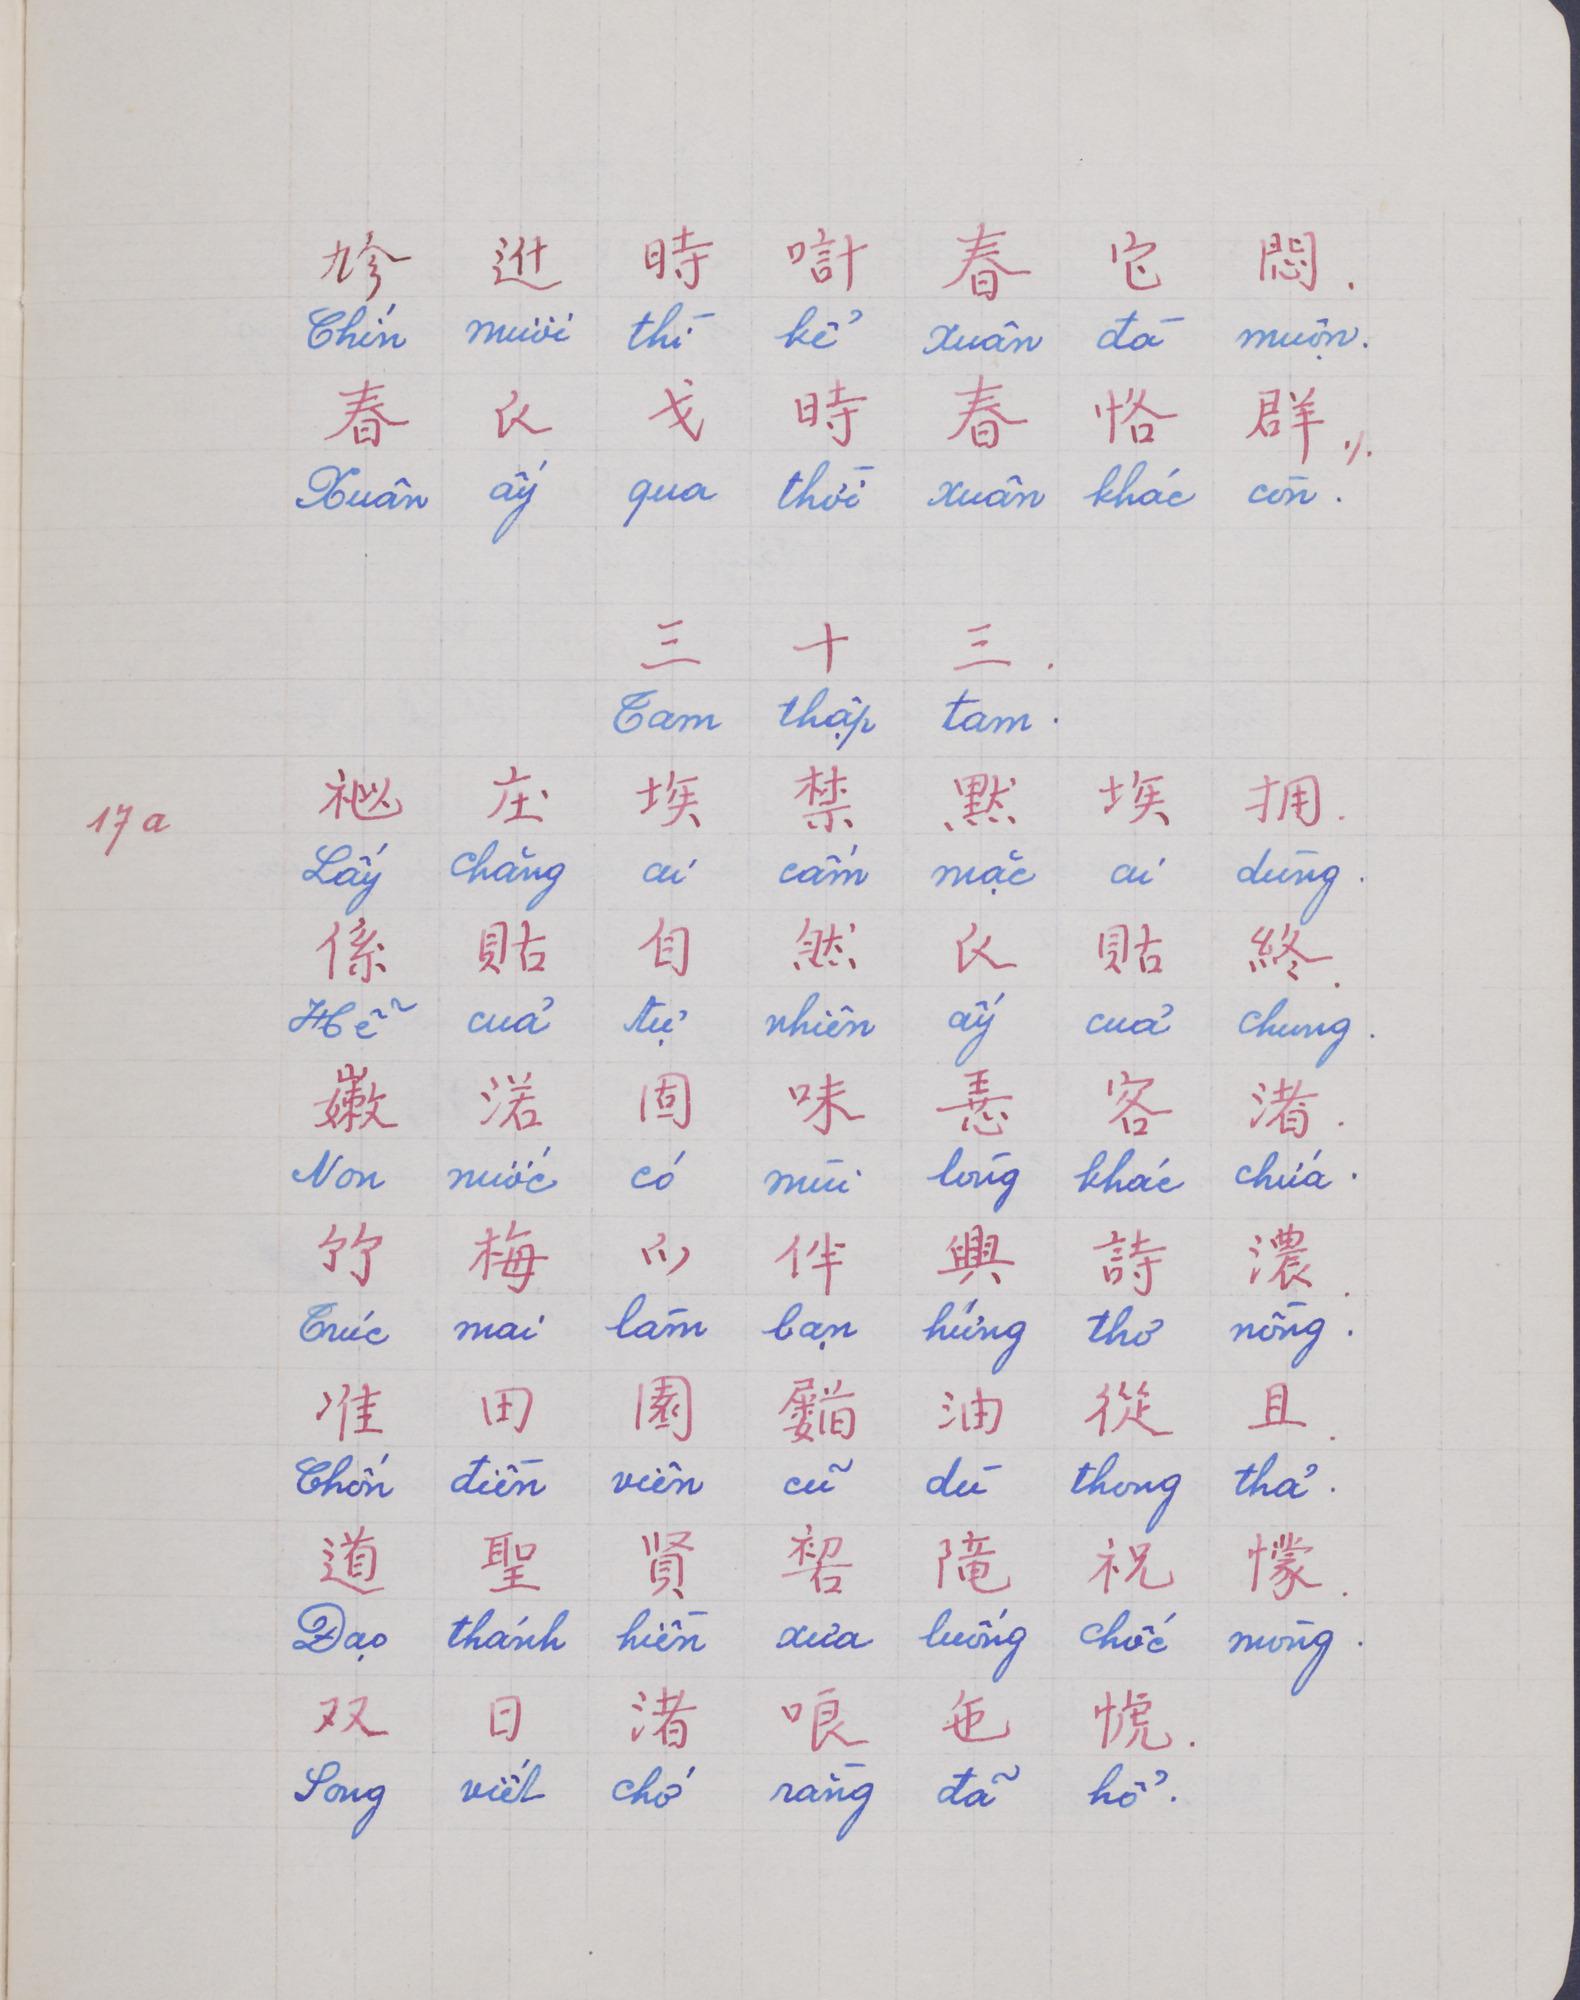 尬 𨑮 時 𠸥 春 它 悶.
Chín mươi thì kể xuân đà muộn.
春 𧘇 戈 時 春 恪 群 ⸓
Xuân ấy qua thời xuân khác còn.
三 十 三.
Tam thập tam.
17a
𥙩 庄 埃 禁 默 埃 拥.
Lấy chăng ai cấm mặc ai dùng.
係 貼 自 然 𧘇 貼 終.
Hễ của tự nhiên ấy của chung.
嫩 渃 固 味 𢚸 客 渚.
Non nước có mùi lòng khác chứa.
竹 梅 伴 興 詩 濃.
Trúc mai làm bạn hứng thơ nồng.
准 田 園 油 從 且.
Chốn điền viên cũ dù thong thả.
道 聖 賢 𠸗 隴 祝 懞.
Đạo thánh hiền xưa luống chốc mòng.
双 曰 渚 哏 㐌 㦆.
Song viết chớ rằng đã hổ.